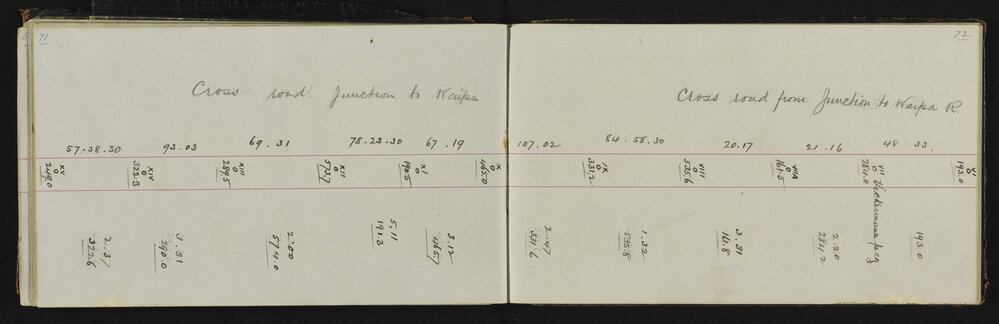 71
Cross road Junction to Waipa
57.38.30 93.03 69.31 78.23.30 67.19
XV
0
249.0
XIV
0
322.3
XIII
0
289.5
XII
0
573.7
XI
0
190.5
X
0
465.0
2.37
322.6
3.31
290.0
2.00
574.0
5.11
191.3
3.12
465.7
72
Cross road from Junction to Waipa R.
107.02 84.58.30 20.17 21.16 48.33
IX
0
331.2
VIII
0
535.6
VIIA
0
161.5
VII
0
284.0
peg
VI
0
193.0
2.47
331.6
1.32
535.8
3.31
161.8
2.20
284.2
193.0